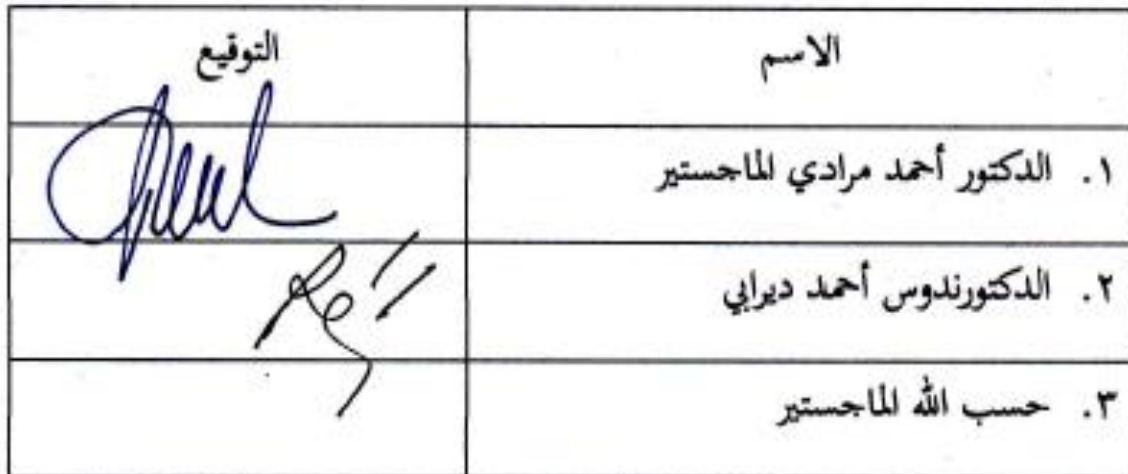 الاسم التوقيع
١. الدكتور أحمد مرادي الماجستير
٢. الدكتورندوس أحمد ديرابي
٣. حسب الله الماجستير